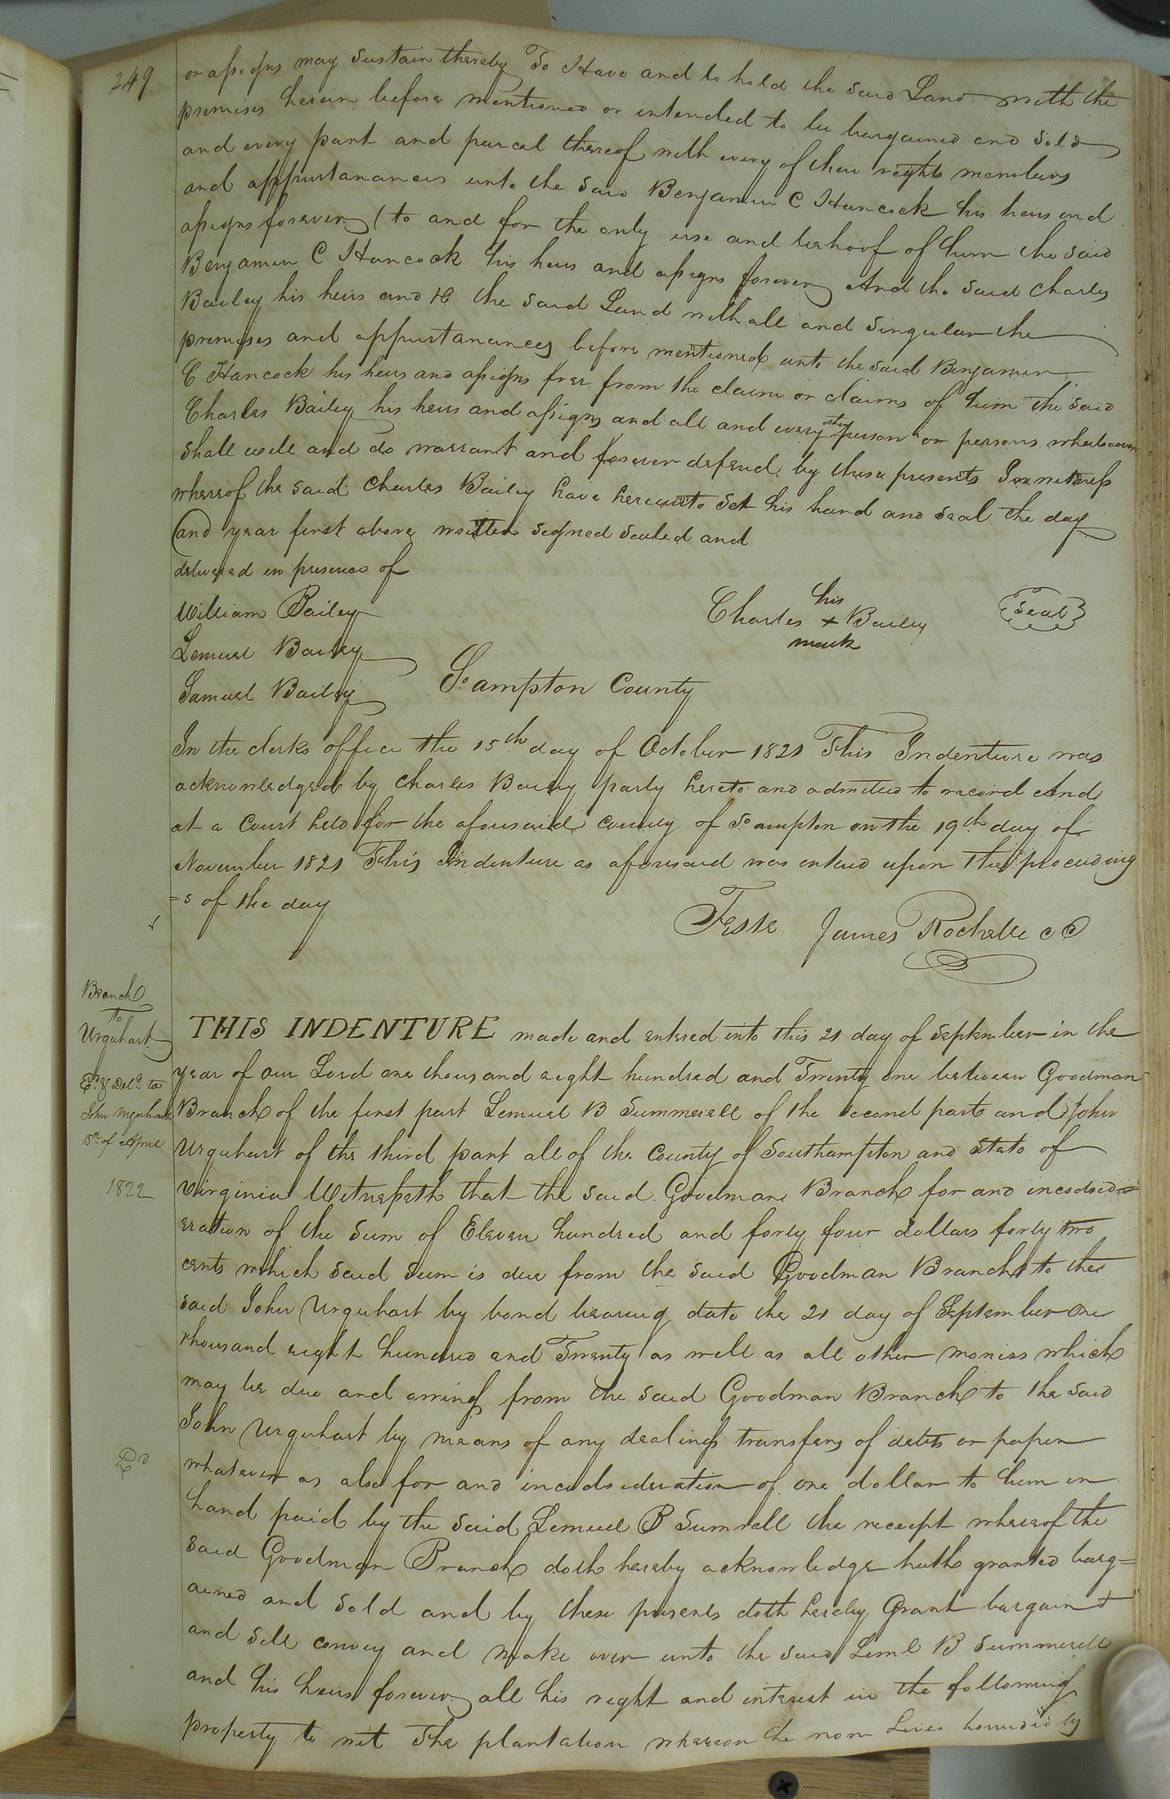 249
or assigns may sustain thereby To Have and to hold the said Land with the
premises herein before mentioned or intended to be bargained and sold
and every part and parcel thereof with every of their rights members
and appurtanances unto the said Benjamin C Hancock his heirs and
assigns forever (to and for the only use and behoof of him the said
Benjamin C Hancock his heirs and assigns forever And the said Charles
Bailey his heirs and the said Land with all and singular the
premises and appurtanances before mentioned unto the said Benjamin
C Hancock his heirs and assigns free from the claim or claims of him the said
Charles Bailey his heirs and assigns and all and every other person or persons whatsoever
shall will and do warrant and forever defend by these presents In witness
whereof the said Charles Bailey have hereunto Set his hand and seal the day
and year first above written signed sealed and
delivered in presence of
William Bailey
Lemuel Bailey
Samuel Bailey
his
Charles + Bailey
mark
Seal
So ampton County
In the clerks office the 15th day of October 1821 This Indenture was
acknowledged by Charles Bailey party hereto and admitted to record And
at a Court held for the aforesaid county of So ampton on the 19th day of
November 1821 This Indenture as aforesaid was entered upon the proceeding
=s of the day
Teste James Rochelle CC
Branch
to
Urquhart
Ex & Deld to
John Urquhart
15th of April
1822
THIS INDENTURE made and entered into this 21 day of September in the
year of our Lord one thousand eight hundred and Twenty one between Goodman
Branch of the first part Lemuel B Summerell of the second part and John
Urquhart of the third part all of the County of Southampton and State of
Virginia Witnesseth that the said Goodman Branch for and inconsid=
eration of the Sum of Eleven hundred and forty four dollars forty two
cents which said sum is due from the said Goodman Branch to the
said John Urquhart by bond bearing date the 21 day of September One
thousand eight hundred and Twenty as well as all other monies which
may be due and arrising from the said Goodman Branch to the said
John Urquhart by means of any dealings transfers of debts or paper
whatever as also for and in consideration of one dollar to him in
hand paid by the said Lemuel B Sumrell the receipt whereof the
said Goodman Branch doth hereby acknowledge hath granted barg=
ained and Sold and by these presents doth hereby Grant bargain &
and sell convey and make over unto the said Leml B Summerell
and his heirs forever all his right and interest in the following
property to wit The plantation whereon he now Lives bounded by